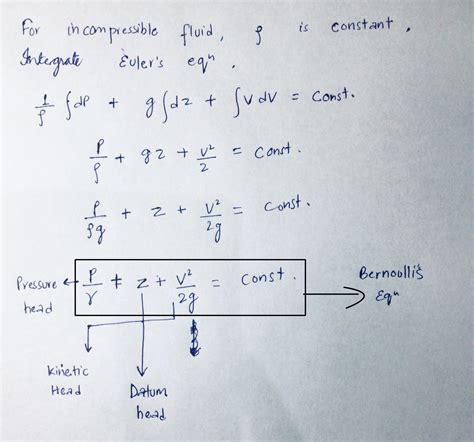 For incompressible fluid, ρ is constant,
Integrate Euler's eqⁿ.
1/ρ ∫dP + g∫dz + ∫v dv = Const.
P/ρ + gz + v²/2 = Const.
P/ρg + z + v²/2g = Const.
Pressure head ← P/γ + z + v²/2g = Const. → Bernoolli's Eqⁿ
Kinetic Head
Datum head